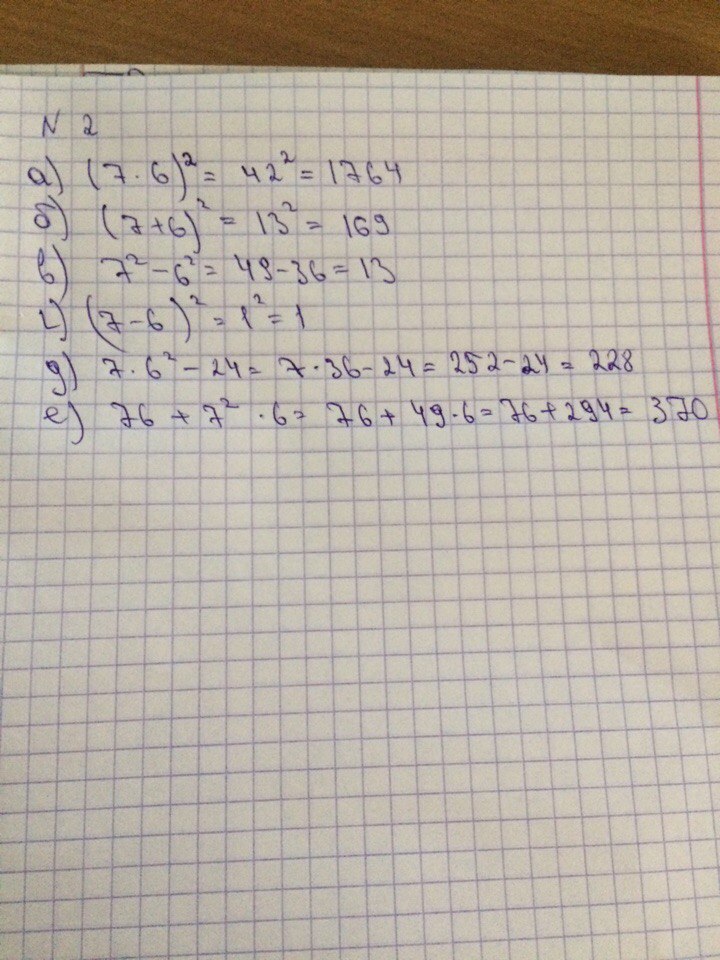 N 2
а) (7·6)² = 42² = 1764
б) (7+6)² = 13² = 169
в) 7² - 6² = 49 - 36 = 13
г) (7-6)² = 1² = 1
д) 7·6² - 24 = 7·36 - 24 = 252 - 24 = 228
е) 76 + 7² · 6 = 76 + 49·6 = 76 + 294 = 370